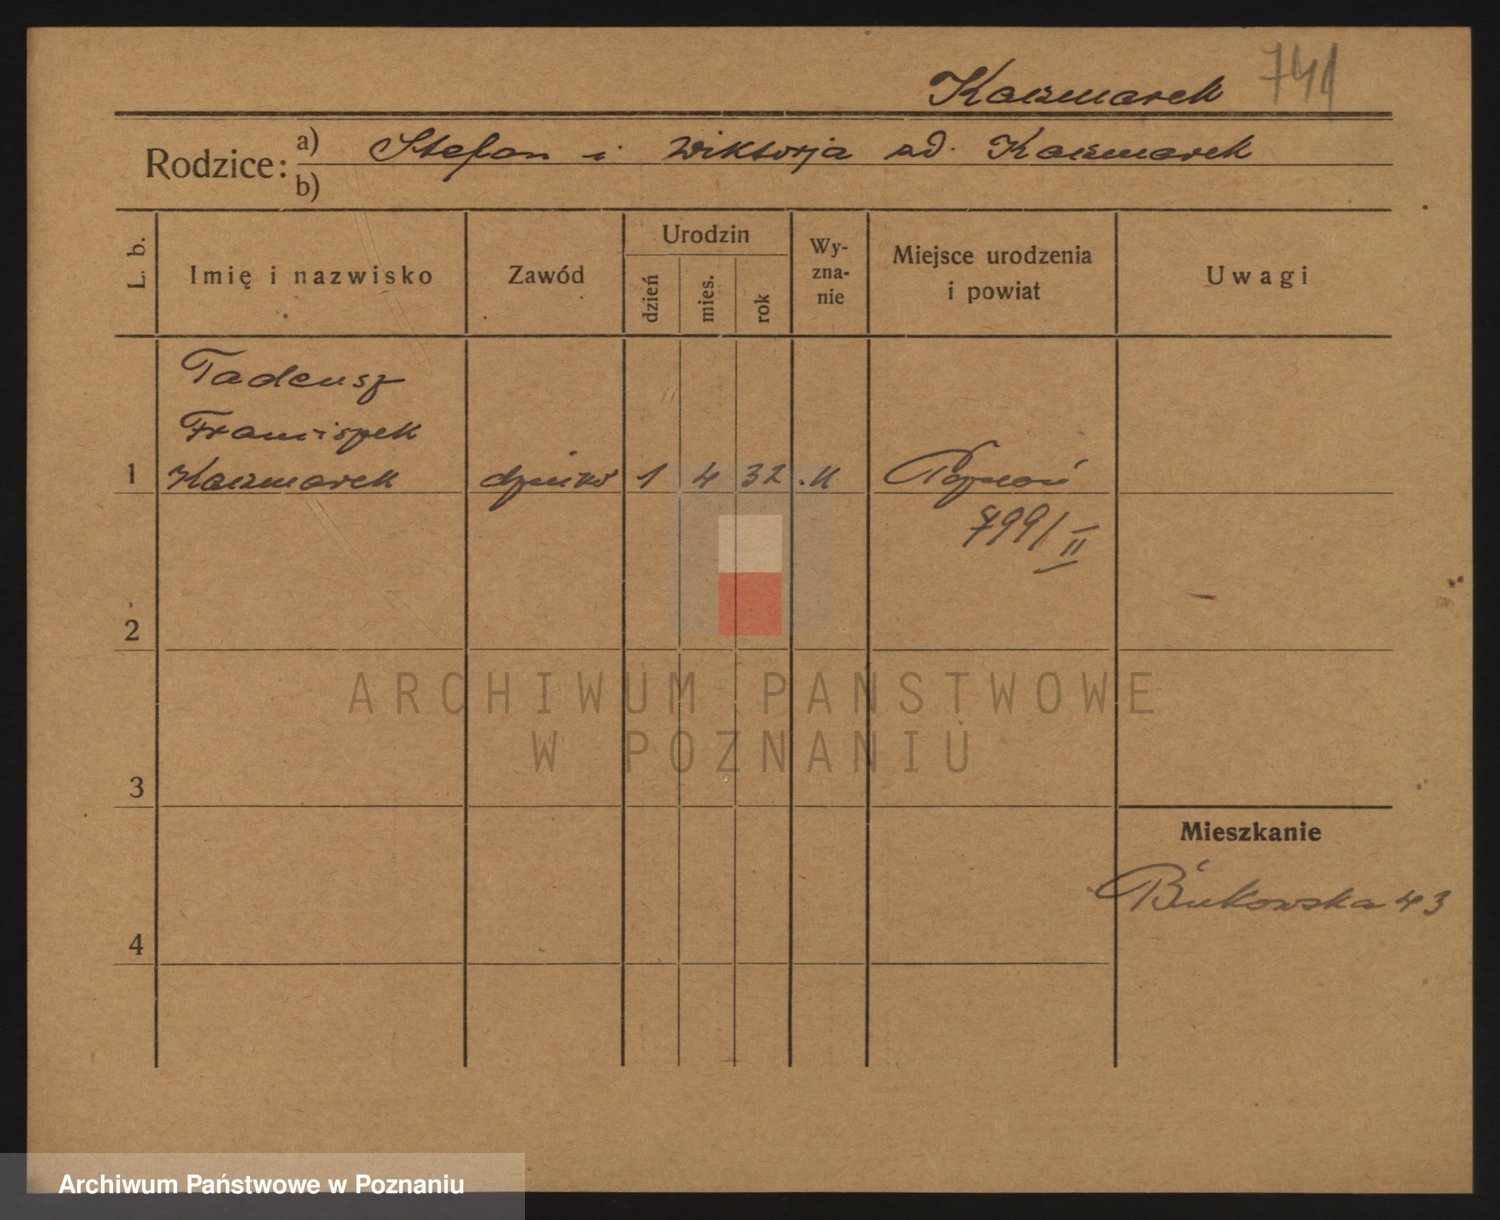 741
Kaczmarek
Rodzice: a) Stefan i Wiktorja zd. Kaczmarek
b)
L. b. Imię i nazwisko Zawód Urodzin dzień mies. rok Wy-zna-nie Miejsce urodzenia i powiat Uwagi
Tadeusz
Franciszek
1 Kaczmarek dziecko 1 4 32 K Poznań
799/II
2
ARCHIWUM PAŃSTWOWE
W POZNANIU
3
Mieszkanie
Bukowska 43
4
Archiwum Państwowe w Poznaniu